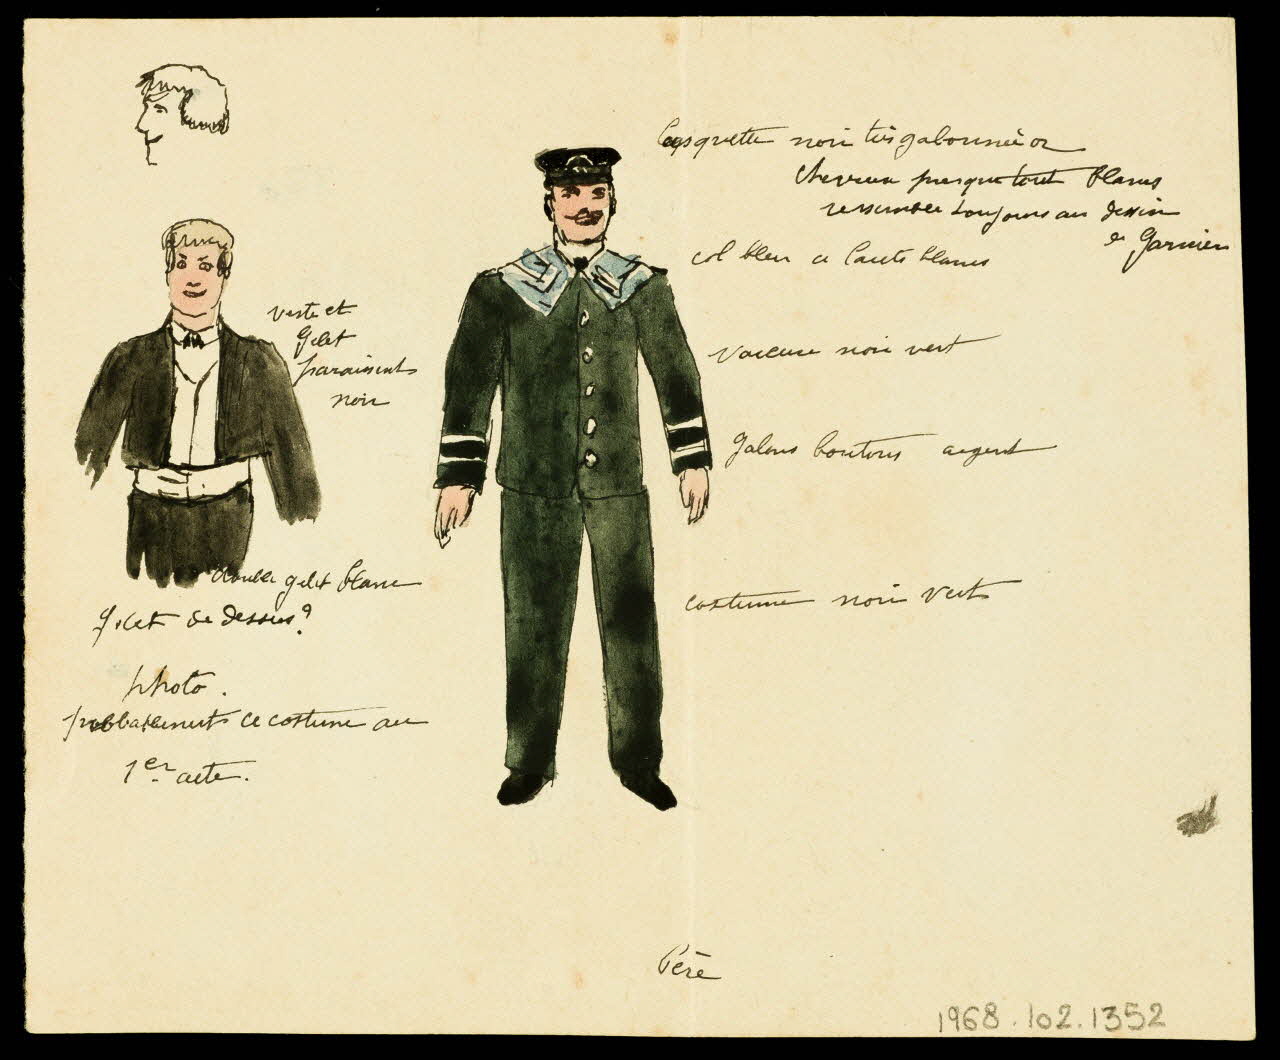 Casquette noir très galonnée or
cheveux presque tout blancs
ressemble toujours au dessin
de Garnier
col bleu a lacets blancs
veste et
gilet
paraissent
noir
vareuse noir vert
galons boutons argent
double gilet blanc
gilet de dessus?
costume noir vert
photo.
probablement ce costume au
1er acte.
Père
1968.102.1352